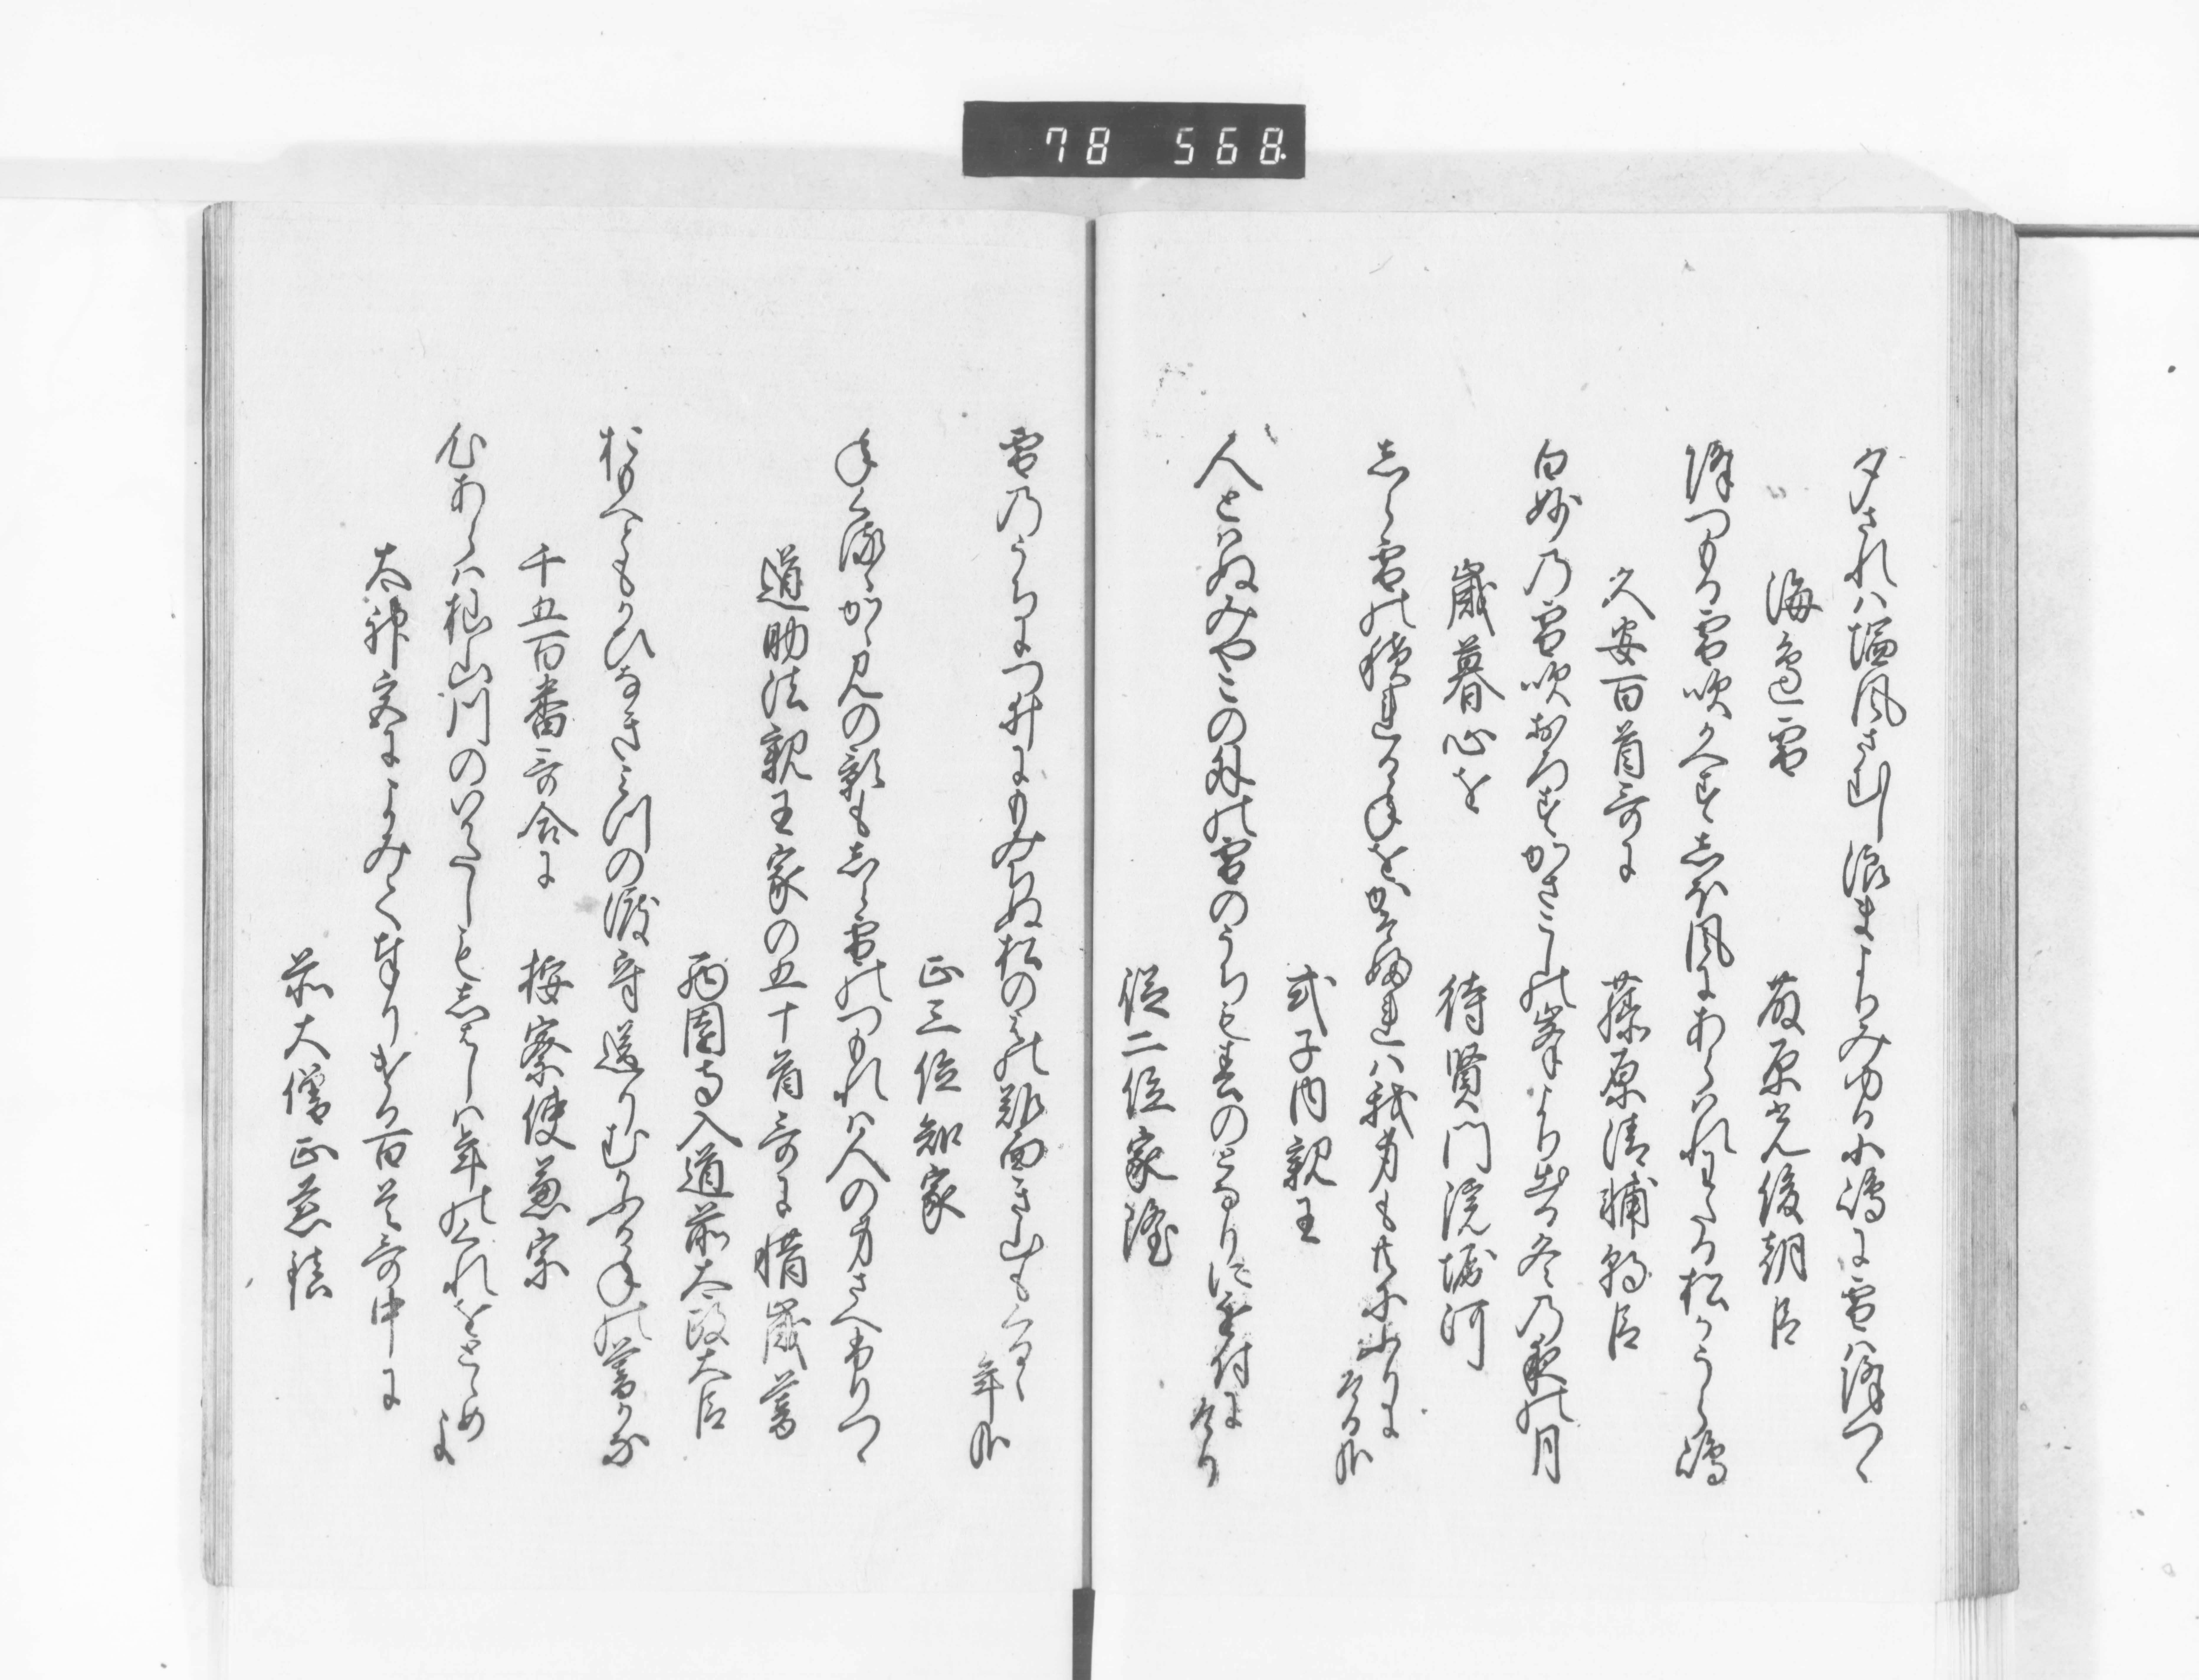 78 568
夕されは塩風さむし浪まよりみゆる小嶋に雪は降つゝ
海邊雪　藤原光俊朝臣
降つもる雪吹かへすしほ風にあらはれわたる松かうら嶋
久安百首哥に　藤原清輔朝臣
白妙の雪吹おろすかさこしの峯より出る冬の夜の月
歳暮心を　待賢門院堀河
しら雪の積れる年をかそふれは我身も共にふりにける哉
式子内親王
人とはぬみやこの外の雪のうちも春のとなりに近付にけり
従二位家隆
雪のうちにつゐにもみちぬ松の葉の難面き山もくるゝ年哉
正三位知家
ます鏡かゝみの影もしら雪のつもれは人の身さへふりつゝ
道助法親王家の五十首哥に惜歳暮
西園寺入道前太政大臣
おもへともかひなき
の渡守送りむかふる年の暮かな
千五百番哥合に　按察使兼宗
心あらは杣山川のいかたしもしはしは年のくれをとゝめよ
太神宮によみて奉りける百首哥中に
前大僧正慈鎮